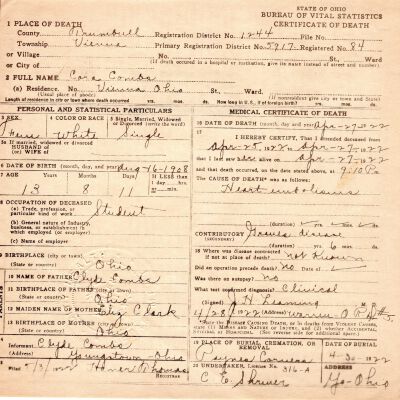 STATE OF OHIO
BUREAU OF VITAL STATISTICS
CERTIFICATE OF DEATH
1 PLACE OF DEATH
County Trumbull Registration District No. 1244 File No.
Township Vienna Primary Registration District No. 5917 Registered No. 84
or Village No. St., Ward
or City of (If death occurred in a hospital or institution, give its NAME instead of street and number)
2 FULL NAME Cora Combs
(a) Residence. No. Vienna Ohio St., Ward.
(If nonresident give city or town and State)
Length of residence in city or town where death occurred yrs. mos. ds. How long in U. S., if of foreign birth? yrs. mos. ds.
PERSONAL AND STATISTICAL PARTICULARS
3 SEX 4 COLOR OR RACE 5 Single, Married, Widowed or Divorced (write the word)
Fem White Single
5a If married, widowed or divorced
HUSBAND of
(or) WIFE of
6 DATE OF BIRTH (month, day, and year) Aug-16-1908
7 AGE Years Months Days If LESS than
1 day, hrs.
or min.
13 8 11
8 OCCUPATION OF DECEASED
(a) Trade, profession, or
particular kind of work Student
(b) General nature of industry,
business, or establishment in
which employed (or employer)
(c) Name of employer
9 BIRTHPLACE (city or town)
(State or country) Ohio
10 NAME OF FATHER Clyde Combs
11 BIRTHPLACE OF FATHER (city or town)
(State or country) Ohio
12 MAIDEN NAME OF MOTHER Clark
13 BIRTHPLACE OF MOTHER (city or town)
(State or country) Ohio
Informant Clyde Combs
(Address) Youngstown-Ohio
Filed Homer Thomas
REGISTRAR
MEDICAL CERTIFICATE OF DEATH
16 DATE OF DEATH (month, day and year) Apr-27-1922
17
I HEREBY CERTIFY, That I attended deceased from
Apr-25, 1922, to Apr-27, 1922
that I last saw alive on Apr-27, 1922
and that death occurred, on the date stated above, at 9:10 P m.
The CAUSE OF DEATH* was as follows:
Heart embolism
(duration) yrs. mos. ds.
CONTRIBUTORY Graves disease
(SECONDARY)
(duration) yrs. 6 mos. ds.
18 Where was disease contracted
if not at place of death? not known
Did an operation precede death? no Date of
Was there an autopsy? no
What test confirmed diagnosis? Clinical
(Signed) H Leaming
4/28, 1922 (Address) Warren-O
*State the Disease Causing Death, or in deaths from Violent Causes, state (1) Means and Nature of Injury, and (2) whether Accidental, Suicidal, or Homicidal.
19 PLACE OF BURIAL, CREMATION, OR REMOVAL DATE OF BURIAL
Paynes Corners 4-30-1922
20 UNDERTAKER, License No. 316-A Address
C E Shriver Yo-Ohio